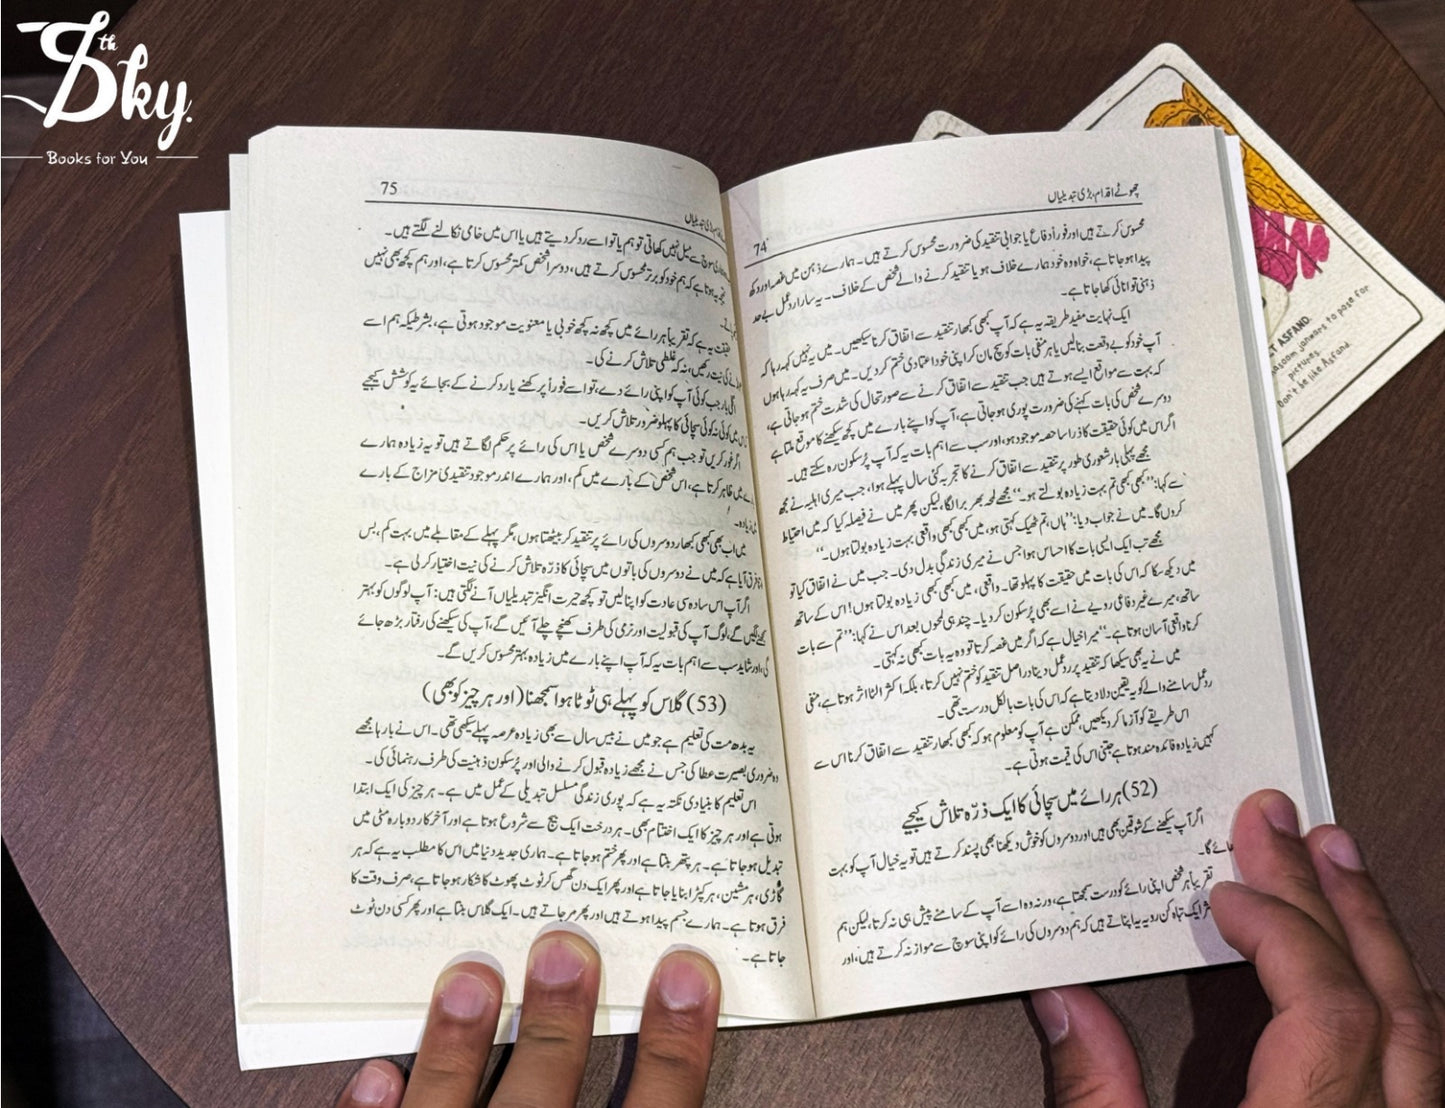 8th Sky.
Books for You
چھوٹے اقدام، بڑی تبدیلیاں
74
محسوس کرتے ہیں اور فوراً دفاع یا جوابی تنقید کی ضرورت محسوس کرتے ہیں۔ ہمارے ذہن میں غصہ اور دکھ
پیدا ہو جاتا ہے، خواہ وہ خود ہمارے خلاف ہو یا تنقید کرنے والے شخص کے خلاف۔ یہ سارا ردعمل بے حد
ذہنی توانائی کھا جاتا ہے۔
ایک نہایت مفید طریقہ یہ ہے کہ آپ کبھی کبھار تنقید سے اتفاق کرنا سیکھیں۔ میں یہ نہیں کہہ رہا کہ
آپ خود کو بے وقعت بنالیں یا ہر منفی بات کو سچ مان کر اپنی خود اعتمادی ختم کر دیں۔ میں صرف یہ کہہ رہا ہوں
کہ بہت سے مواقع ایسے ہوتے ہیں جب تنقید سے اتفاق کرنے سے صورتحال کی شدت ختم ہو جاتی ہے،
دوسرے شخص کی بات کہنے کی ضرورت پوری ہو جاتی ہے، آپ کو اپنے بارے میں کچھ سیکھنے کا موقع ملتا ہے
اگر اس میں کوئی حقیقت کا ذرا سا حصہ موجود ہو، اور سب سے اہم بات یہ کہ آپ پُرسکون رہ سکتے ہیں۔
مجھے پہلی بار شعوری طور پر تنقید سے اتفاق کرنے کا تجربہ کئی سال پہلے ہوا، جب میری اہلیہ نے مجھ
سے کہا: ”کبھی کبھی تم بہت زیادہ بولتے ہو۔“ مجھے لمحہ بھر برا لگا، لیکن پھر میں نے فیصلہ کیا کہ میں احتیاط
کروں گا۔ میں نے جواب دیا: ”ہاں، تم ٹھیک کہتی ہو، میں کبھی کبھی واقعی بہت زیادہ بولتا ہوں۔“
مجھے تب ایک ایسی بات کا احساس ہوا جس نے میری زندگی بدل دی۔ جب میں نے اتفاق کیا تو
میں دیکھ سکا کہ اس کی بات میں حقیقت کا پہلو تھا۔ واقعی، میں کبھی کبھی زیادہ بولتا ہوں! اس کے ساتھ
ساتھ، میرے غیر دفاعی رویے نے اسے بھی پُرسکون کر دیا۔ چند ہی لمحوں بعد اس نے کہا: ”تم سے بات
کرنا واقعی آسان ہوتا ہے۔“ میرا خیال ہے کہ اگر میں غصہ کرتا تو وہ یہ بات کبھی نہ کہتی۔
میں نے یہ بھی سیکھا کہ تنقید پر ردعمل دینا دراصل تنقید کو ختم نہیں کرتا، بلکہ اکثر الٹا اثر ہوتا ہے، منفی
ردعمل سامنے والے کو یہ یقین دلا دیتا ہے کہ اس کی بات بالکل درست تھی۔
اس طریقے کو آزما کر دیکھیں، ممکن ہے آپ کو معلوم ہو کہ کبھی کبھار تنقید سے اتفاق کرنا اس سے
کہیں زیادہ فائدہ مند ہوتا ہے جتنی اس کی قیمت ہوتی ہے۔
(52) ہر رائے میں سچائی کا ایک ذرّہ تلاش کیجیے
اگر آپ سیکھنے کے شوقین بھی ہیں اور دوسروں کو خوش دیکھنا بھی پسند کرتے ہیں تو یہ خیال آپ کو بہت
جائے گا۔
تقریباً ہر شخص اپنی رائے کو درست سمجھتا ہے، ورنہ وہ اسے آپ کے سامنے پیش ہی نہ کرتا، لیکن ہم
ایک تباہ کن رویہ یہ اپناتے ہیں کہ ہم دوسروں کی رائے کو اپنی سوچ سے موازنہ کرتے ہیں، اور
75
بڑی تبدیلیاں
سوچ سے میل نہیں کھاتی تو ہم یا تو اسے رد کر دیتے ہیں یا اس میں خامی نکالنے لگتے ہیں۔
نتیجہ یہ ہوتا ہے کہ ہم خود کو برتر محسوس کرتے ہیں، دوسرا شخص کمتر محسوس کرتا ہے، اور ہم کچھ بھی نہیں
حقیقت یہ ہے کہ تقریباً ہر رائے میں کچھ نہ کچھ خوبی یا معنویت موجود ہوتی ہے، بشرطیکہ ہم اسے
کی نیت رکھیں، نہ کہ غلطی تلاش کرنے کی۔
اگلی بار جب کوئی آپ کو اپنی رائے دے، تو اسے فوراً پرکھنے یا رد کرنے کے بجائے یہ کوشش کیجیے
میں کوئی نہ کوئی سچائی کا پہلو ضرور تلاش کریں۔
اگر غور کریں تو جب ہم کسی دوسرے شخص یا اس کی رائے پر حکم لگاتے ہیں تو یہ زیادہ ہمارے
میں ظاہر کرتا ہے، اس شخص کے بارے میں کم، اور ہمارے اندر موجود تنقیدی مزاج کے بارے
زیادہ۔
میں اب بھی کبھی کبھار دوسروں کی رائے پر تنقید کر بیٹھتا ہوں، مگر پہلے کے مقابلے میں بہت کم، بس
فرق آیا ہے کہ میں نے دوسروں کی باتوں میں سچائی کا ذرّہ تلاش کرنے کی نیت اختیار کر لی ہے۔
اگر آپ اس سادہ سی عادت کو اپنا لیں تو کچھ حیرت انگیز تبدیلیاں آنے لگتی ہیں: آپ لوگوں کو بہتر
لگیں گے، لوگ آپ کی قبولیت اور نرمی کی طرف کھنچے چلے آئیں گے، آپ کی سیکھنے کی رفتار بڑھ جائے
گی، اور شاید سب سے اہم بات یہ کہ آپ اپنے بارے میں زیادہ بہتر محسوس کریں گے۔
(53) گلاس کو پہلے ہی ٹوٹا ہوا سمجھنا (اور ہر چیز کو بھی)
یہ بدھ مت کی تعلیم ہے جو میں نے بیس سال سے بھی زیادہ عرصہ پہلے سیکھی تھی۔ اس نے بارہا مجھے
وہ ضروری بصیرت عطا کی جس نے مجھے زیادہ قبول کرنے والی اور پُرسکون ذہنیت کی طرف رہنمائی کی۔
اس تعلیم کا بنیادی نکتہ یہ ہے کہ پوری زندگی مسلسل تبدیلی کے عمل میں ہے۔ ہر چیز کی ایک ابتدا
ہوتی ہے اور ہر چیز کا ایک اختتام بھی۔ ہر درخت ایک بیج سے شروع ہوتا ہے اور آخر کار دوبارہ مٹی میں
تبدیل ہو جاتا ہے۔ ہر پتھر بنتا ہے اور پھر ختم ہو جاتا ہے۔ ہماری جدید دنیا میں اس کا مطلب یہ ہے کہ ہر
گاڑی، ہر مشین، ہر کپڑا بنایا جاتا ہے اور پھر ایک دن گھس کر ٹوٹ پھوٹ کا شکار ہو جاتا ہے، صرف وقت کا
فرق ہوتا ہے۔ ہمارے جسم پیدا ہوتے ہیں اور پھر مر جاتے ہیں۔ ایک گلاس بنتا ہے اور پھر کسی دن ٹوٹ
جاتا ہے۔
ET ASFAND.
to pose for
pictures.
Don't be like Asfand.